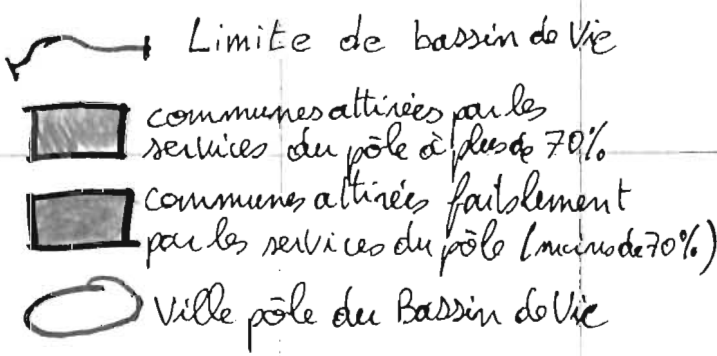 Limite de bassin de Vie
communes attirées par les
services du pôle à plus de 70%
communes attirées faiblement
par les services du pôle (moins de 70%)
Ville pôle du Bassin de Vie